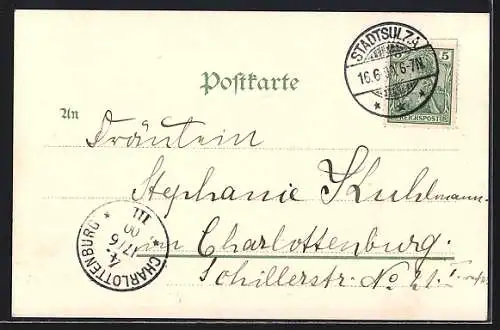 STADTSULZA
16.6.00 6-7N
5
REICHSPOST
Postkarte
An
Fräulein
Stephanie Kuhlmann.
in Charlottenburg.
Schillerstr. No 21.
CHARLOTTENBURG
17/6
00
III